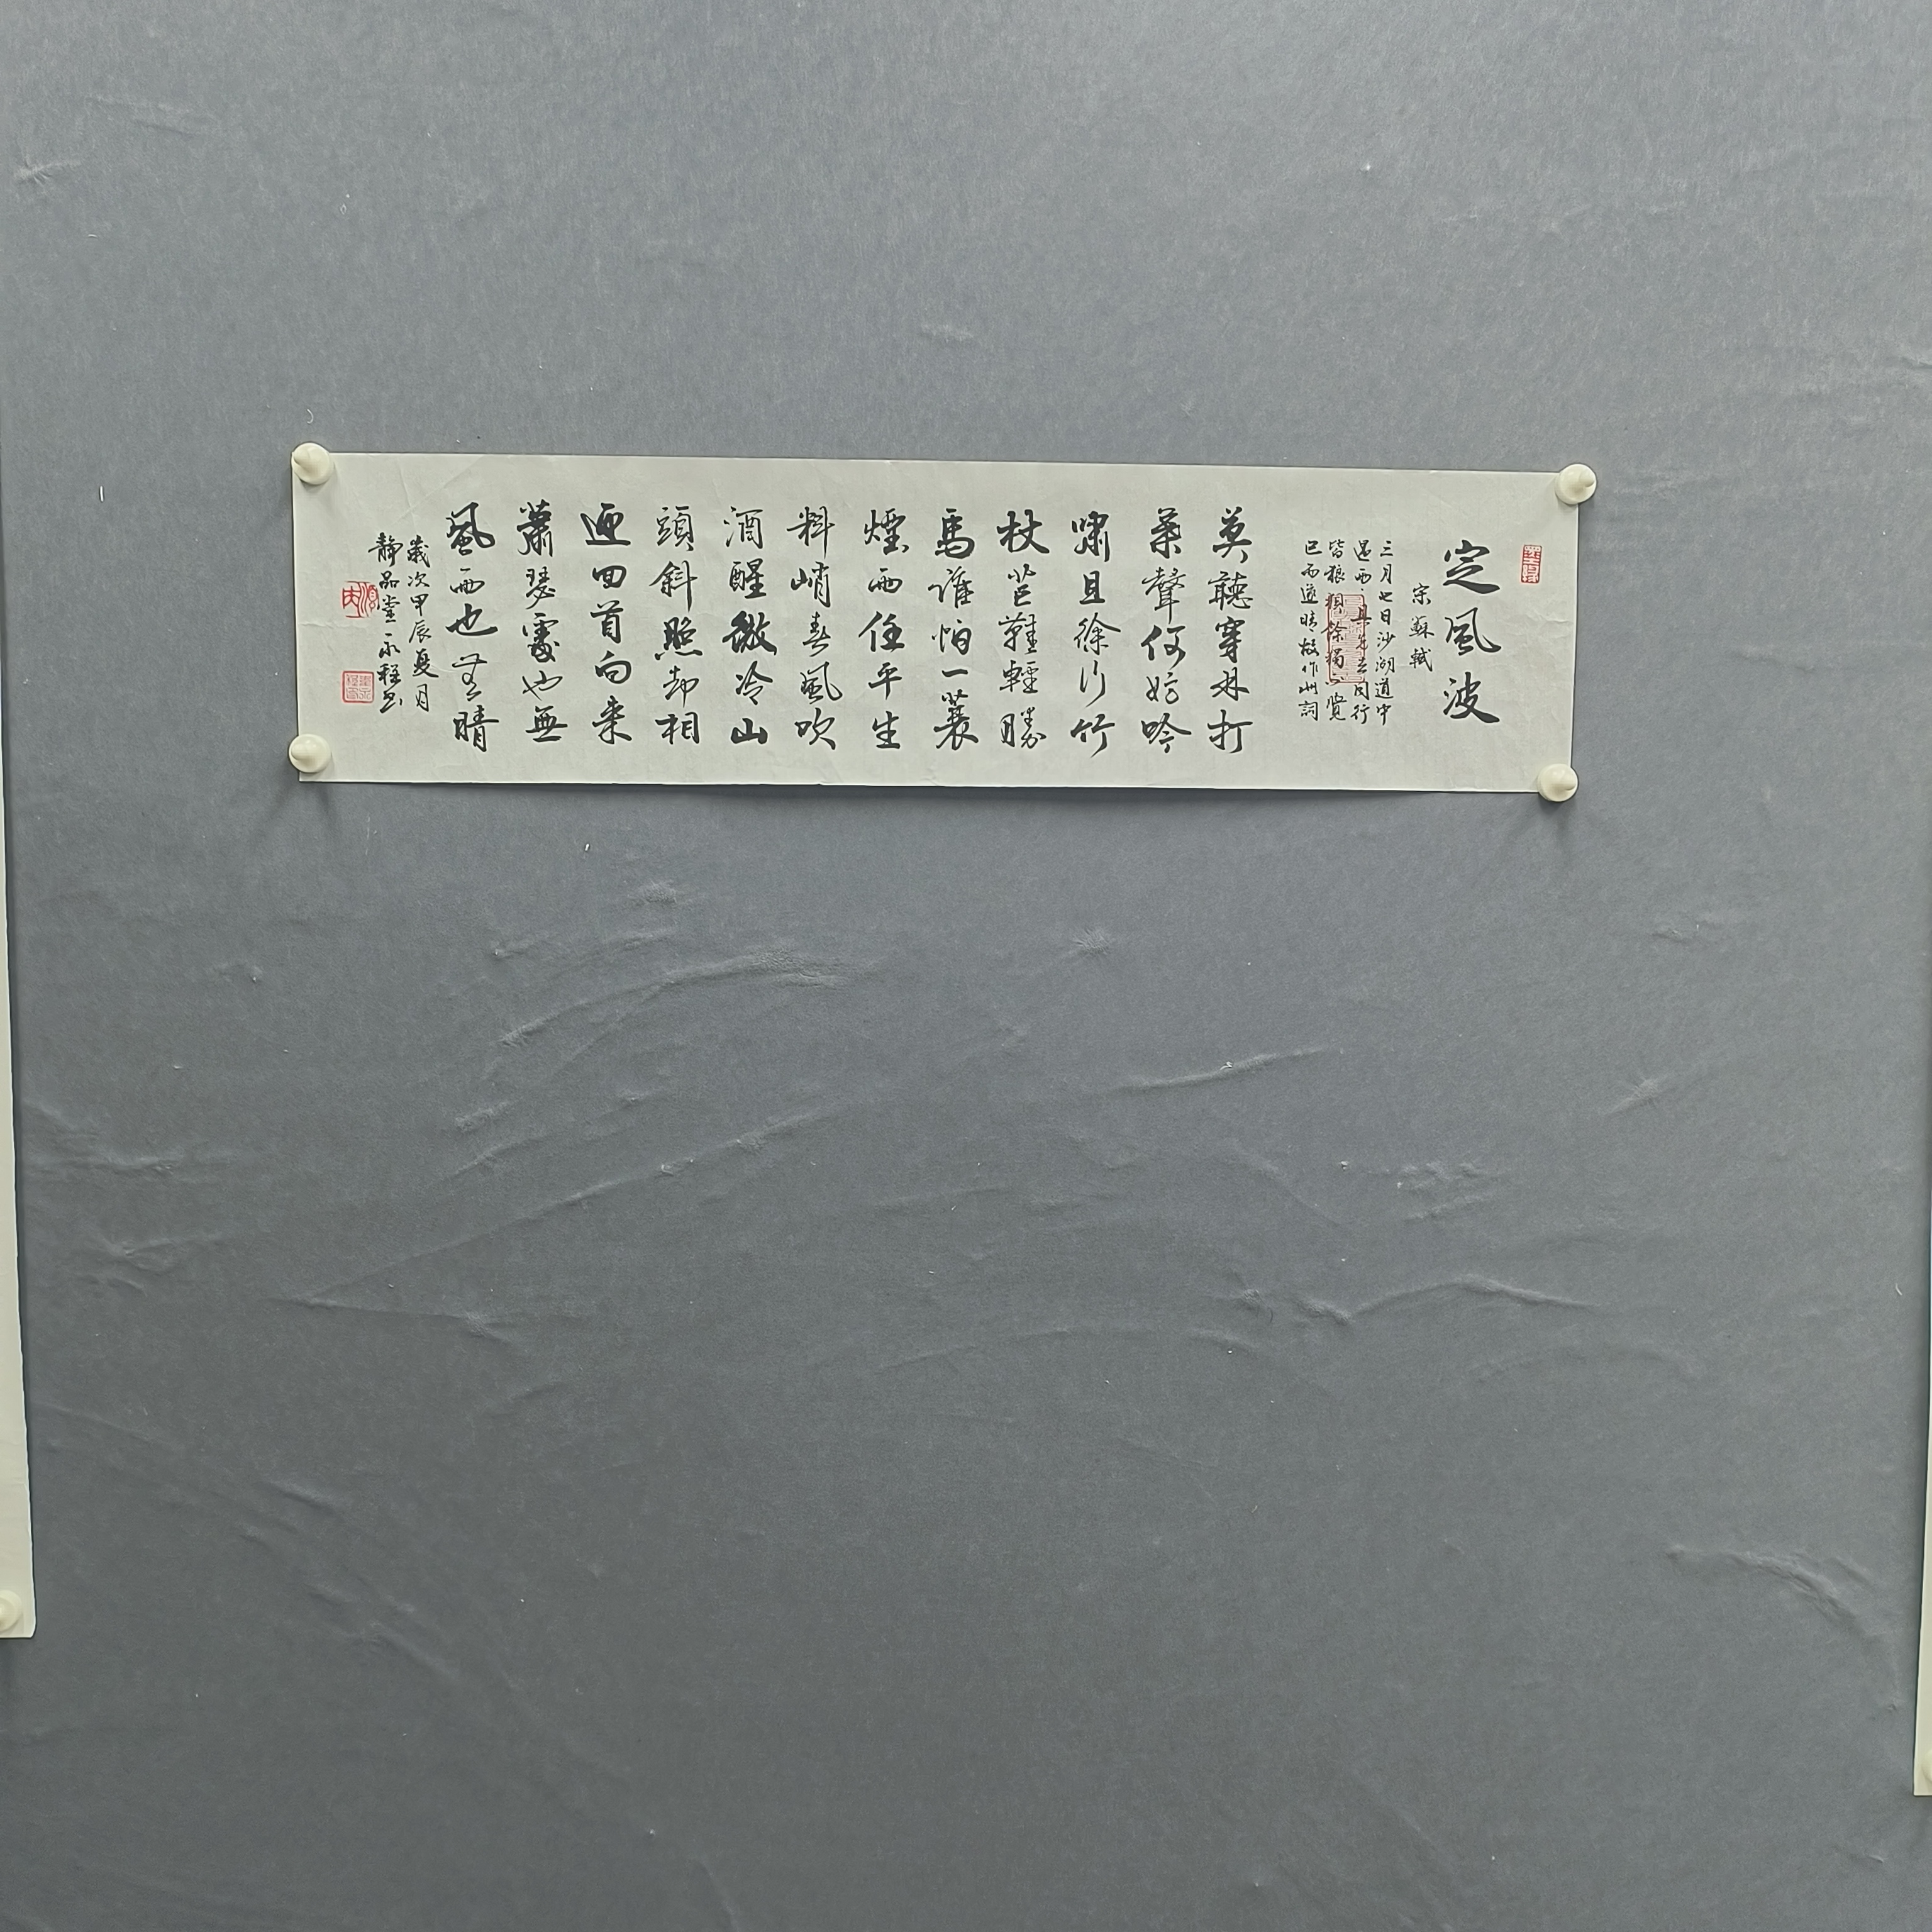 定風波
宋蘇軾
三月七日沙湖道中
遇雨具先去同行
皆狼狽余獨不覺
已而遂晴故作此詞
莫聽穿林打
葉聲何妨吟
嘯且徐行竹
杖芒鞋輕勝
馬誰怕一蓑
煙雨任平生
料峭春風吹
酒醒微冷山
頭斜照却相
迎回首向來
蕭瑟處也無
風雨也無晴
歲次甲辰夏月
靜品堂永程書